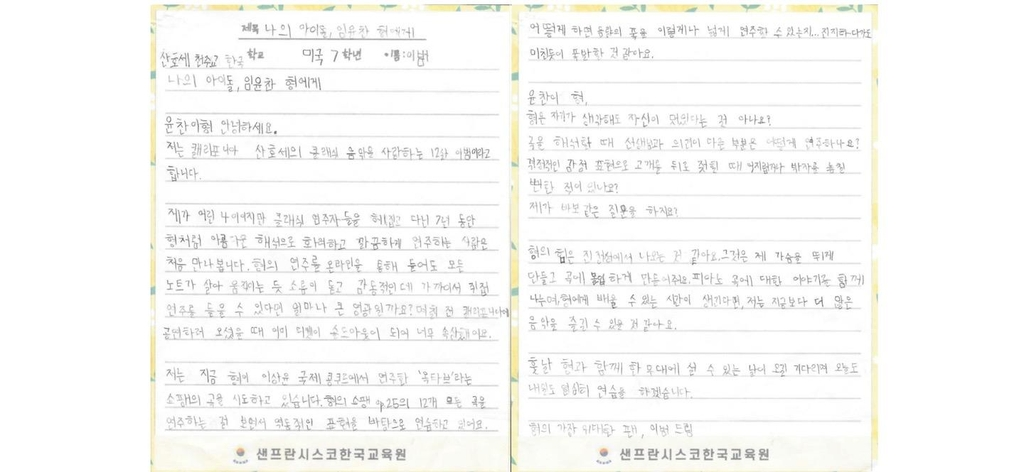 제목 나의 아이돌, 임윤찬 형에게
산호세 천주교 한국 학교 미국 7학년 이름: 이범
나의 아이돌, 임윤찬 형에게
윤찬이형 안녕하세요.
저는 캘리포니아 산호세의 클래식 음악을 사랑하는 12살 이범이라고
합니다.
제가 어린 나이이지만 클래식 연주자들을 찾고 다닌 7년 동안
형처럼 아름다운 해석으로 화려하고 깔끔하게 연주하는 사람은
처음 만나봅니다. 형의 연주를 온라인을 통해 들어도 모든
노트가 살아 움직이는 듯 소름이 돋고 감동적인데 가까이서 직접
연주를 들을 수 있다면 얼마나 큰 영광일까요? 며칠 전 캘리포니아에
공연하러 오셨을 때 이미 티켓이 솔드아웃이 되어 너무 속상했어요.
저는 지금 형이 국제 콩쿠르에서 연주한 '옥타브'라는
쇼팽의 곡을 시도하고 있습니다. 형의 쇼팽 op.25의 12개 모든 곡을
연주하는 걸 보면서 역동적인 표현을 바탕으로 연습하고 있어요.
어떻게 하면 음악의 폭을 이렇게나 넓게 연주할 수 있는지... 잔잔하다가도
미친듯이 폭발한 것 같아요.
윤찬이 형,
형은 자기가 생각해도 자신이 멋있다는 것 아나요?
곡을 해석할 때 선생님과 의견이 다른 부분은 어떻게 연주하나요?
열정적인 감정 표현으로 고개를 뒤로 젖힐 때 어지럽거나 박자를 놓칠
뻔한 적이 있나요?
제가 바보 같은 질문을 하지요?
형의 힘은 진정성에서 나오는 것 같아요. 그것은 제 가슴을 뛰게
만들고 곡에 몰입하게 만들어줘요. 피아노 곡에 대한 이야기를 함께
나누며, 형에게 배울 수 있는 시간이 생긴다면, 저는 지금보다 더 많은
음악을 즐길 수 있을 것 같아요.
훗날 형과 함께 한 무대에 설 수 있는 날이 오길 기다리며 오늘도
내일도 열심히 연습을 하겠습니다.
형의 가장 위대한 팬, 이범 드림
샌프란시스코한국교육원
샌프란시스코한국교육원